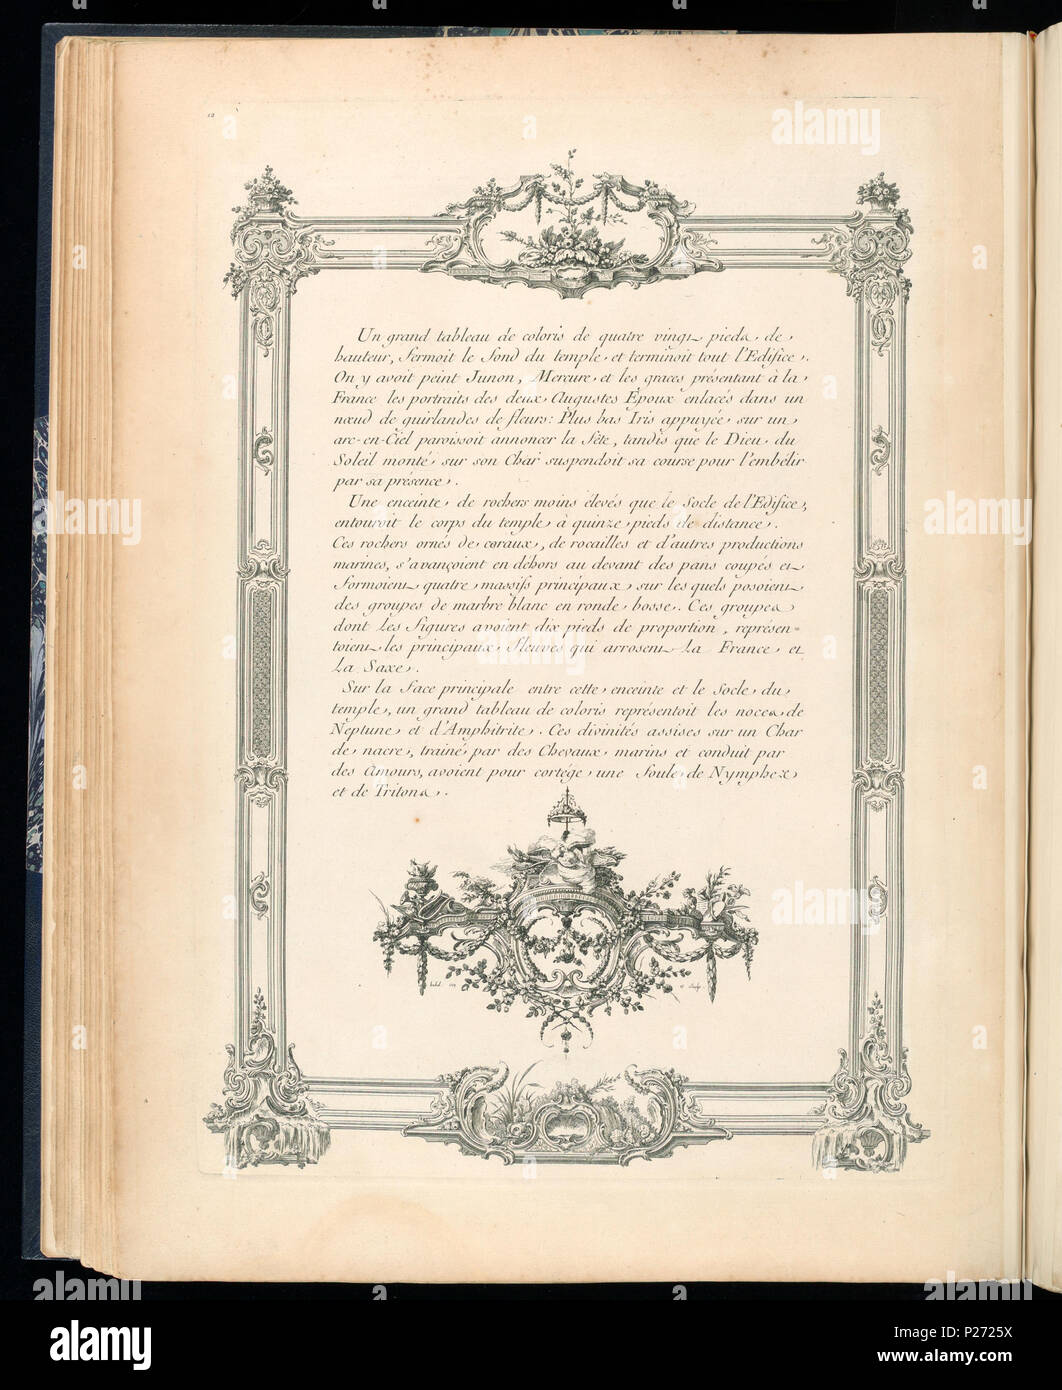 12
Un grand tableau de coloris de quatre vingt pieds de
hauteur, fermoit le fond du temple et terminoit tout l'Edifice.
On y avoit peint Junon, Mercure et les graces présentant à la
France les portraits des deux Augustes Epoux enlacés dans un
nœud de guirlandes de fleurs: Plus bas Iris appuyée sur un
arc-en-Ciel paroissoit annoncer la fête, tandis que le Dieu du
Soleil monté sur son Char suspendoit sa course pour l'embélir
par sa présence.
Une enceinte de rochers moins élevés que le Socle de l'Edifice,
entouroit le corps du temple à quinze pieds de distance.
Ces rochers ornés de coraux, de rocailles et d'autres productions
marines, s'avançoient en déhors au devant des pans coupés et
formoient quatre massifs principaux sur les quels posoient
des groupes de marbre blanc en ronde bosse. Ces groupes
dont les figures avoient dix pieds de proportion, représen=
toient les principaux fleuves qui arrosent La France et
La Saxe.
Sur la face principale entre cette enceinte et le Socle du
temple, un grand tableau de coloris représentoit les noces de
Neptune et d'Amphitrite. Ces divinités assises sur un Char
de nacre, trainé par des Chevaux marins et conduit par
des Amours, avoient pour cortége une foule de Nymphes
et de Tritons.
alamy
alamy
alamy
alamy
Image ID: P2725X
www.alamy.com